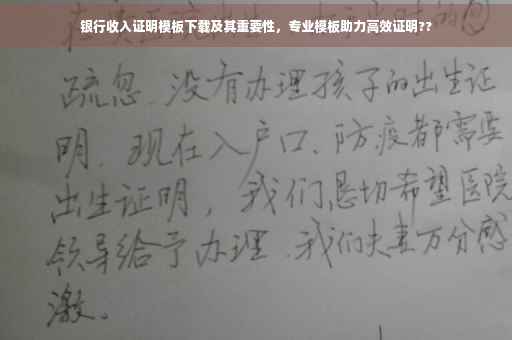 银行收入证明模板下载及其重要性，专业模板助力高效证明??
疏忽、没有办理孩子的出生证
明、现在入户口、防疫都需要
出生证明，我们恳切希望医院
领导给予办理、我们夫妻万分感
激。